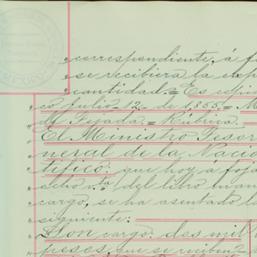 correspondiente, á f
se recibiera la esp
cantidad. = Es copia
co Julio 12 de 1855. = M
de Tejada = Rúbrica.
El Ministro Tesor
neral de la Nació
tifico: que hoy a foja
ocho ta del libro man
cargo, se ha asentado l
siguiente:
Son cargo: dos mil
pesos, que se recibier